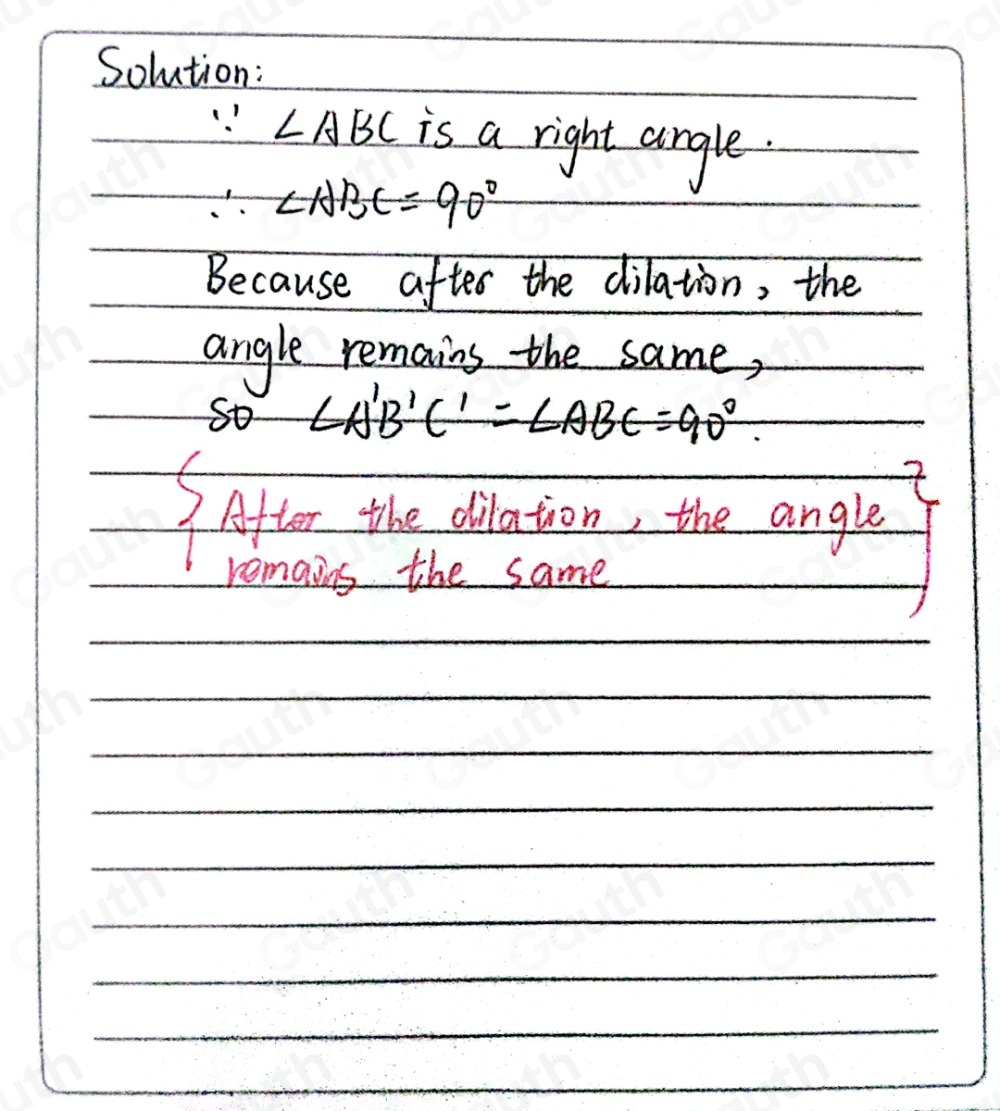 Solution:
∵ ∠ABC is a right angle.
∴ ∠ABC = 90°
Because after the dilation, the
angle remains the same,
so ∠A'B'C' = ∠ABC = 90°.
{ After the dilation, the angle }
remains the same
Gauth